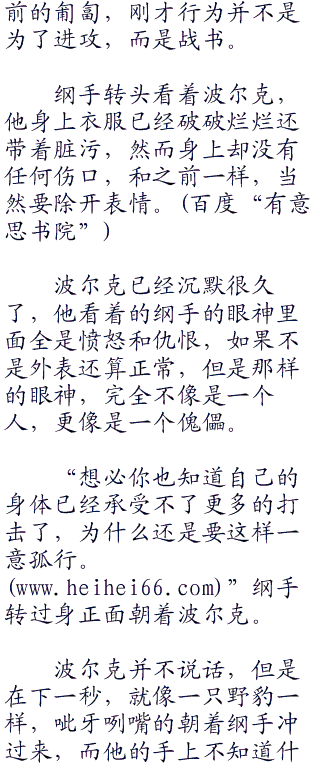 前的匍匐，刚才行为并不是
为了进攻，而是战书。
纲手转头看着波尔克，
他身上衣服已经破破烂烂还
带着脏污，然而身上却没有
任何伤口，和之前一样，当
然要除开表情。(百度“有意
思书院”)
波尔克已经沉默很久
了，他看着的纲手的眼神里
面全是愤怒和仇恨，如果不
是外表还算正常，但是那样
的眼神，完全不像是一个
人，更像是一个傀儡。
“想必你也知道自己的
身体已经承受不了更多的打
击了，为什么还是要这样一
意孤行。
(www.heihei66.com)”纲手
转过身正面朝着波尔克。
波尔克并不说话，但是
在下一秒，就像一只野豹一
样，呲牙咧嘴的朝着纲手冲
过来，而他的手上不知道什